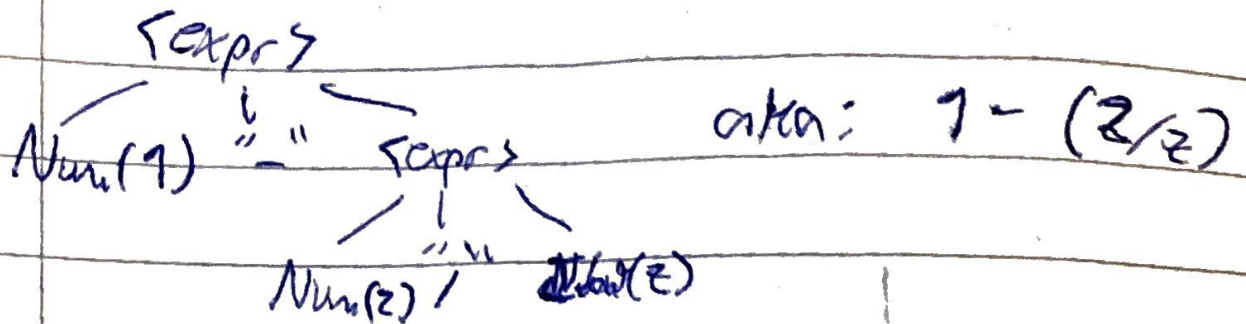 <expr>
Num(1) "-" <expr> aka: 1 - (2/2)
Num(2) "/" Num(2)